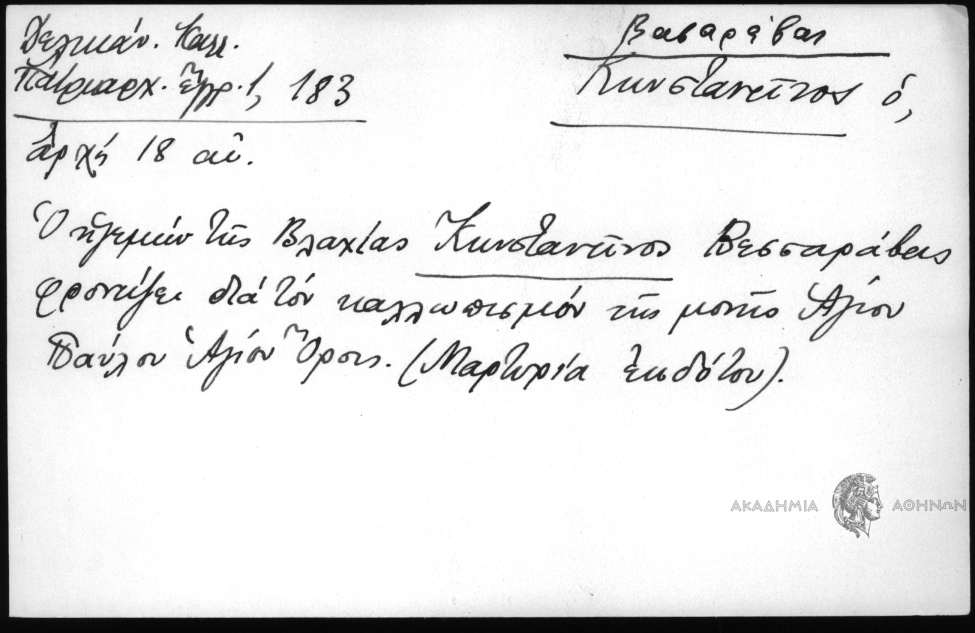 Δελικάν. Καλλ.
Πατριαρχ. Ἔγγρ. 1, 183
Βασαράβας
Κωνσταντῖνος ὁ,
ἀρχή 18 αἰ.
Ὁ ἡγεμών τῆς Βλαχίας Κωνσταντῖνος Βεσσαράβας
φροντίζει διά τόν καλλωπισμόν τῆς μονῆς Ἁγίου
Παύλου Ἁγίου Ὄρους. (Μαρτυρία ἐκδότου).
ΑΚΑΔΗΜΙΑ ΑΘΗΝΩΝ